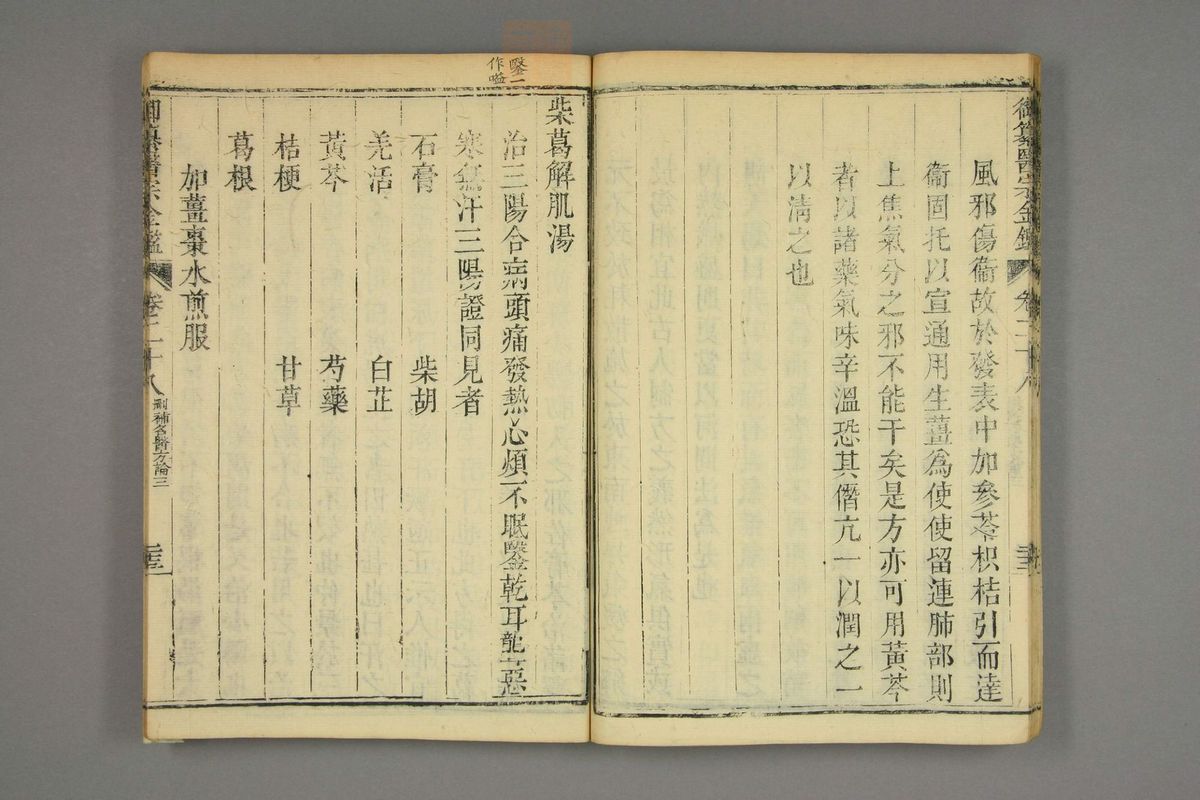 御纂醫宗金鑑 卷二十八
風邪傷衞故於發表中加參苓枳桔引而達
衞固托以宣通用生薑爲使使留連肺部則
上焦氣分之邪不能干矣是方亦可用黃芩
者以諸藥氣味辛溫恐其僭亢一以潤之一
以淸之也
鑒一
作嗌
柴葛解肌湯
治三陽合病頭痛發熱心煩不眠鑒乾耳聾惡
寒無汗三陽證同見者
石膏 柴胡
羌活 白芷
黃芩 芍藥
桔梗 甘草
葛根
加薑棗水煎服
御纂醫宗金鑑 卷二十八 刪補名醫方論三